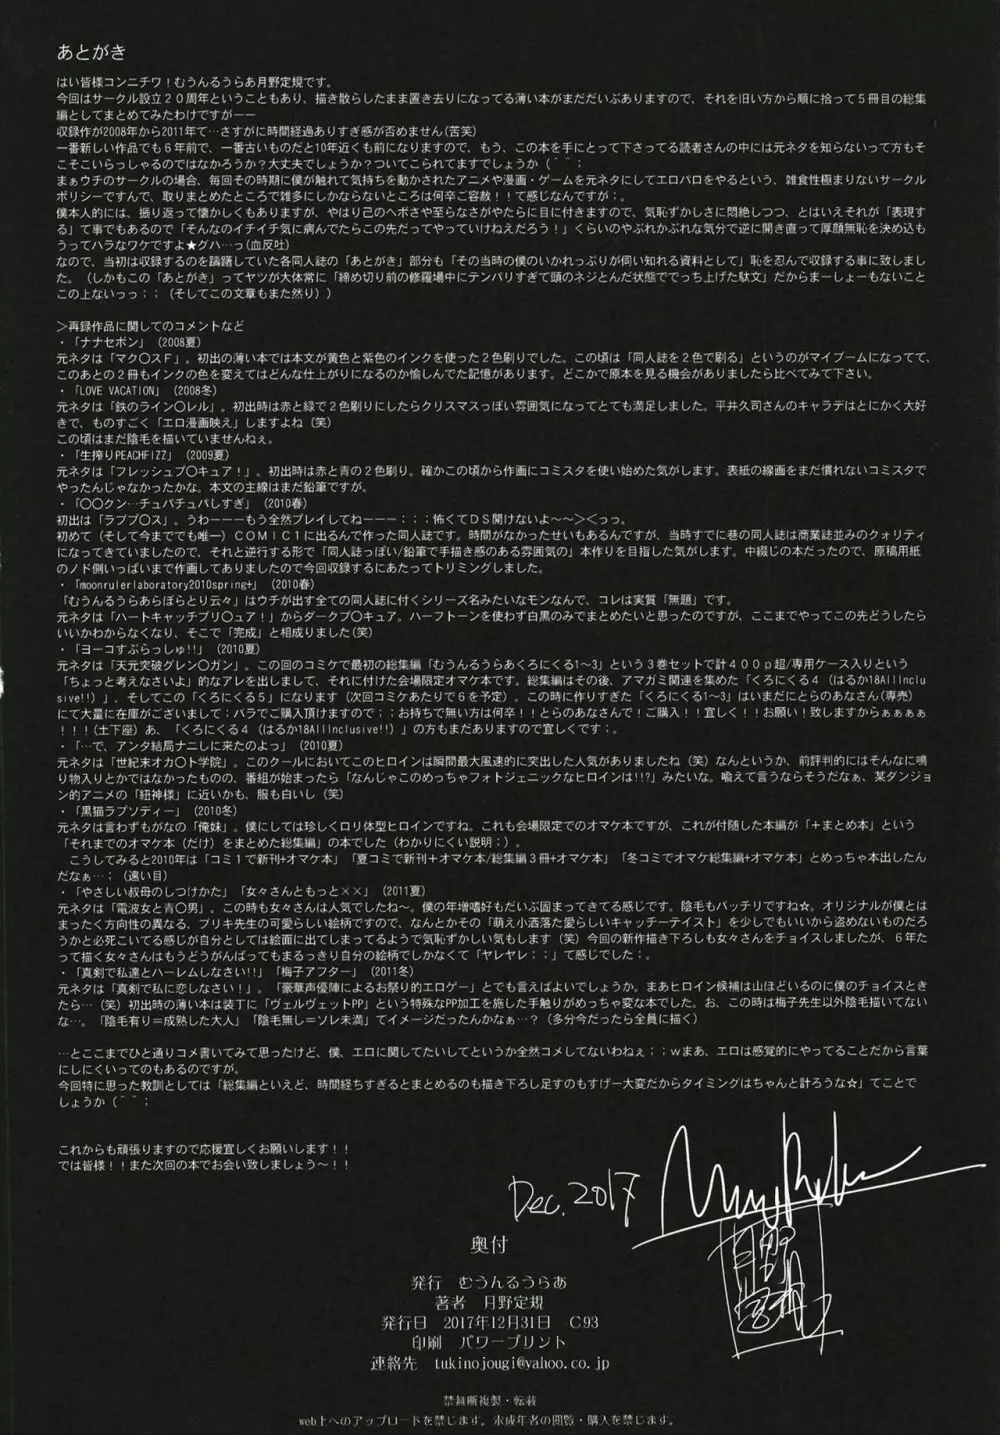 あとがき
はい皆様コンニチワ！むうんるうらあ月野定規です。
今回はサークル設立２０周年ということもあり、描き散らしたまま置き去りになってる薄い本がまだだいぶありますので、それを旧い方から順に拾って５冊目の総集
編としてまとめてみたわけですがーー
収録作が2008年から2011年て…さすがに時間経過ありすぎ感が否めません(苦笑)
一番新しい作品でも６年前で、一番古いものだと10年近くも前になりますので、もう、この本を手にとって下さってる読者さんの中には元ネタを知らないって方もそ
こそこいらっしゃるのではなかろうか？大丈夫でしょうか？ついてこられてますでしょうか（＾＾；
まぁウチのサークルの場合、毎回その時期に僕が触れて気持ちを動かされたアニメや漫画・ゲームを元ネタにしてエロパロをやるという、雑食性極まりないサークル
ポリシーですんで、取りまとめたところで雑多にしかならないところは何卒ご容赦！！て感じなんですが；。
僕本人的には、振り返って懐かしくもありますが、やはり己のヘボさや至らなさがやたらに目に付きますので、気恥ずかしさに悶絶しつつ、とはいえそれが「表現す
る」て事でもあるので「そんなのイチイチ気に病んでたらこの先だってやっていけねえだろう！」くらいのやぶれかぶれな気分で逆に開き直って厚顔無恥を決め込も
うってハラなワケですよ★グハ…っ(血反吐)
なので、当初は収録するのを躊躇していた各同人誌の「あとがき」部分も「その当時の僕のいかれっぷりが伺い知れる資料として」恥を忍んで収録する事に致しまし
た。（しかもこの「あとがき」ってヤツが大体常に「締め切り前の修羅場中にテンパリすぎて頭のネジとんだ状態ででっち上げた駄文」だからまーしょーもないこと
この上ないっっ；；（そしてこの文章もまた然り））
＞再録作品に関してのコメントなど
・「ナナセボン」（2008夏）
元ネタは「マク〇スＦ」。初出の薄い本では本文が黄色と紫色のインクを使った２色刷りでした。この頃は「同人誌を２色で刷る」というのがマイブームになってて、
このあとの２冊もインクの色を変えてはどんな仕上がりになるのか愉しんでた記憶があります。どこかで原本を見る機会がありましたら比べてみて下さい。
・「LOVE VACATION」（2008冬）
元ネタは「鉄のライン〇レル」。初出時は赤と緑で２色刷りにしたらクリスマスっぽい雰囲気になってとても満足しました。平井久司さんのキャラデはとにかく大好
きで、ものすごく「エロ漫画映え」しますよね（笑）
この頃はまだ陰毛を描いていませんねぇ。
・「生搾りPEACHFIZZ」（2009夏）
元ネタは「フレッシュプ〇キュア！」。初出時は赤と青の２色刷り。確かこの頃から作画にコミスタを使い始めた気がします。表紙の線画をまだ慣れないコミスタで
やったんじゃなかったかな。本文の主線はまだ鉛筆ですが。
・「〇〇クン…チュパチュパしすぎ」（2010春）
初出は「ラブプ〇ス」。うわーーーもう全然プレイしてねーーー；；；怖くてＤＳ開けないよ～～＞＜っっ。
初めて（そして今まででも唯一）ＣＯＭＩＣ１に出るんで作った同人誌です。時間がなかったせいもあるんですが、当時すでに巷の同人誌は商業誌並みのクォリティ
になってきていましたので、それと逆行する形で「同人誌っぽい/鉛筆で手描き感のある雰囲気の」本作りを目指した気がします。中綴じの本だったので、原稿用紙
のノド側いっぱいまで作画してありましたので今回収録するにあたってトリミングしました。
・「moonrulerlaboratory2010spring+」（2010春）
「むうんるうらあらぼらとり云々」はウチが出す全ての同人誌に付くシリーズ名みたいなモンなんで、コレは実質「無題」です。
元ネタは「ハートキャッチプリ〇ュア！」からダークプ〇キュア。ハーフトーンを使わず白黒のみでまとめたいと思ったのですが、ここまでやってこの先どうしたら
いいかわからなくなり、そこで「完成」と相成りました(笑)
・「ヨーコすぷらっしゅ!!」（2010夏）
元ネタは「天元突破グレン〇ガン」。この回のコミケで最初の総集編「むうんるうらあくろにくる1～3」という３巻セットで計４００ｐ超/専用ケース入りという
「ちょっと考えなさいよ」的なアレを出しまして、それに付けた会場限定オマケ本です。総集編はその後、アマガミ関連を集めた「くろにくる４（はるか18AllInclu
sive!!）」、そしてこの「くろにくる５」になります（次回コミケあたりで６を予定）。この時に作りすぎた「くろにくる1～3」はいまだにとらのあなさん(専売)
にて大量に在庫がございまして；バラでご購入頂けますので；；お持ちで無い方は何卒！！とらのあなさんで！ご購入！！宜しく！！お願い！致しますからぁぁぁぁ
！！！(土下座）あ、「くろにくる４（はるか18AllInclusive!!）」の方もまだありますので宜しくです；。
・「…で、アンタ結局ナニしに来たのよっ」（2010夏）
元ネタは「世紀末オカ〇ト学院」。このクールにおいてこのヒロインは瞬間最大風速的に突出した人気がありましたね（笑）なんというか、前評判的にはそんなに鳴
り物入りとかではなかったものの、番組が始まったら「なんじゃこのめっちゃフォトジェニックなヒロインは!!?」みたいな。喩えて言うならそうだなぁ、某ダンジョ
ン的アニメの「紐神様」に近いかも、服も白いし（笑）
・「黒猫ラプソディー」（2010冬）
元ネタは言わずもがなの「俺妹」。僕にしては珍しくロリ体型ヒロインですね。これも会場限定でのオマケ本ですが、これが付随した本編が「＋まとめ本」という
「それまでのオマケ本（だけ）をまとめた総集編」の本でした（わかりにくい説明；）。
こうしてみると2010年は「コミ１で新刊+オマケ本」「夏コミで新刊＋オマケ本/総集編３冊+オマケ本」「冬コミでオマケ総集編+オマケ本」とめっちゃ本出したん
だなぁ…；（遠い目）
・「やさしい叔母のしつけかた」「女々さんともっと××」（2011夏）
元ネタは「電波女と青〇男」。この時も女々さんは人気でしたね～。僕の年増嗜好もだいぶ固まってきてる感じです。陰毛もバッチリですね☆。オリジナルが僕とは
まったく方向性の異なる、ブリキ先生の可愛らしい絵柄ですので、なんとかその「萌え小洒落た愛らしいキャッチーテイスト」を少しでもいいから盗めないものだろ
うかと必死こいてる感じが自分としては絵面に出てしまってるようで気恥ずかしい気もします（笑）今回の新作描き下ろしも女々さんをチョイスしましたが、６年た
って描く女々さんはもうどうがんばってもまるっきり自分の絵柄でしかなくて「ヤレヤレ；；」て感じでした；。
・「真剣で私達とハーレムしなさい!!」「梅子アフター」（2011冬）
元ネタは「真剣で私に恋しなさい！」。「豪華声優陣によるお祭り的エロゲー」とでも言えばよいでしょうか。まあヒロイン候補は山ほどいるのに僕のチョイスとき
たら…（笑）初出時の薄い本は装丁に「ヴェルヴェットPP」という特殊なPP加工を施した手触りがめっちゃ変な本でした。お、この時は梅子先生以外陰毛描いてない
な…。「陰毛有り＝成熟した大人」「陰毛無し＝ソレ未満」てイメージだったんかなぁ…？（多分今だったら全員に描く）
…とここまでひと通りコメ書いてみて思ったけど、僕、エロに関してたいしてというか全然コメしてないわねぇ；；ｗまあ、エロは感覚的にやってることだから言葉
にしにくいってのもあるのですが。
今回特に思った教訓としては「総集編といえど、時間経ちすぎるとまとめるのも描き下ろし足すのもすげー大変だからタイミングはちゃんと計ろうな☆」てことで
しょうか（＾＾；
これからも頑張りますので応援宜しくお願いします！！
では皆様！！また次回の本でお会い致しましょう～！！
Dec. 2017
月野定規
奥付
発行　むうんるうらあ
著者　月野定規
発行日　2017年12月31日　Ｃ93
印刷　パワープリント
連絡先　tukinojougi@yahoo.co.jp
禁無断複製・転載
web上へのアップロードを禁じます。未成年者の閲覧・購入を禁じます。